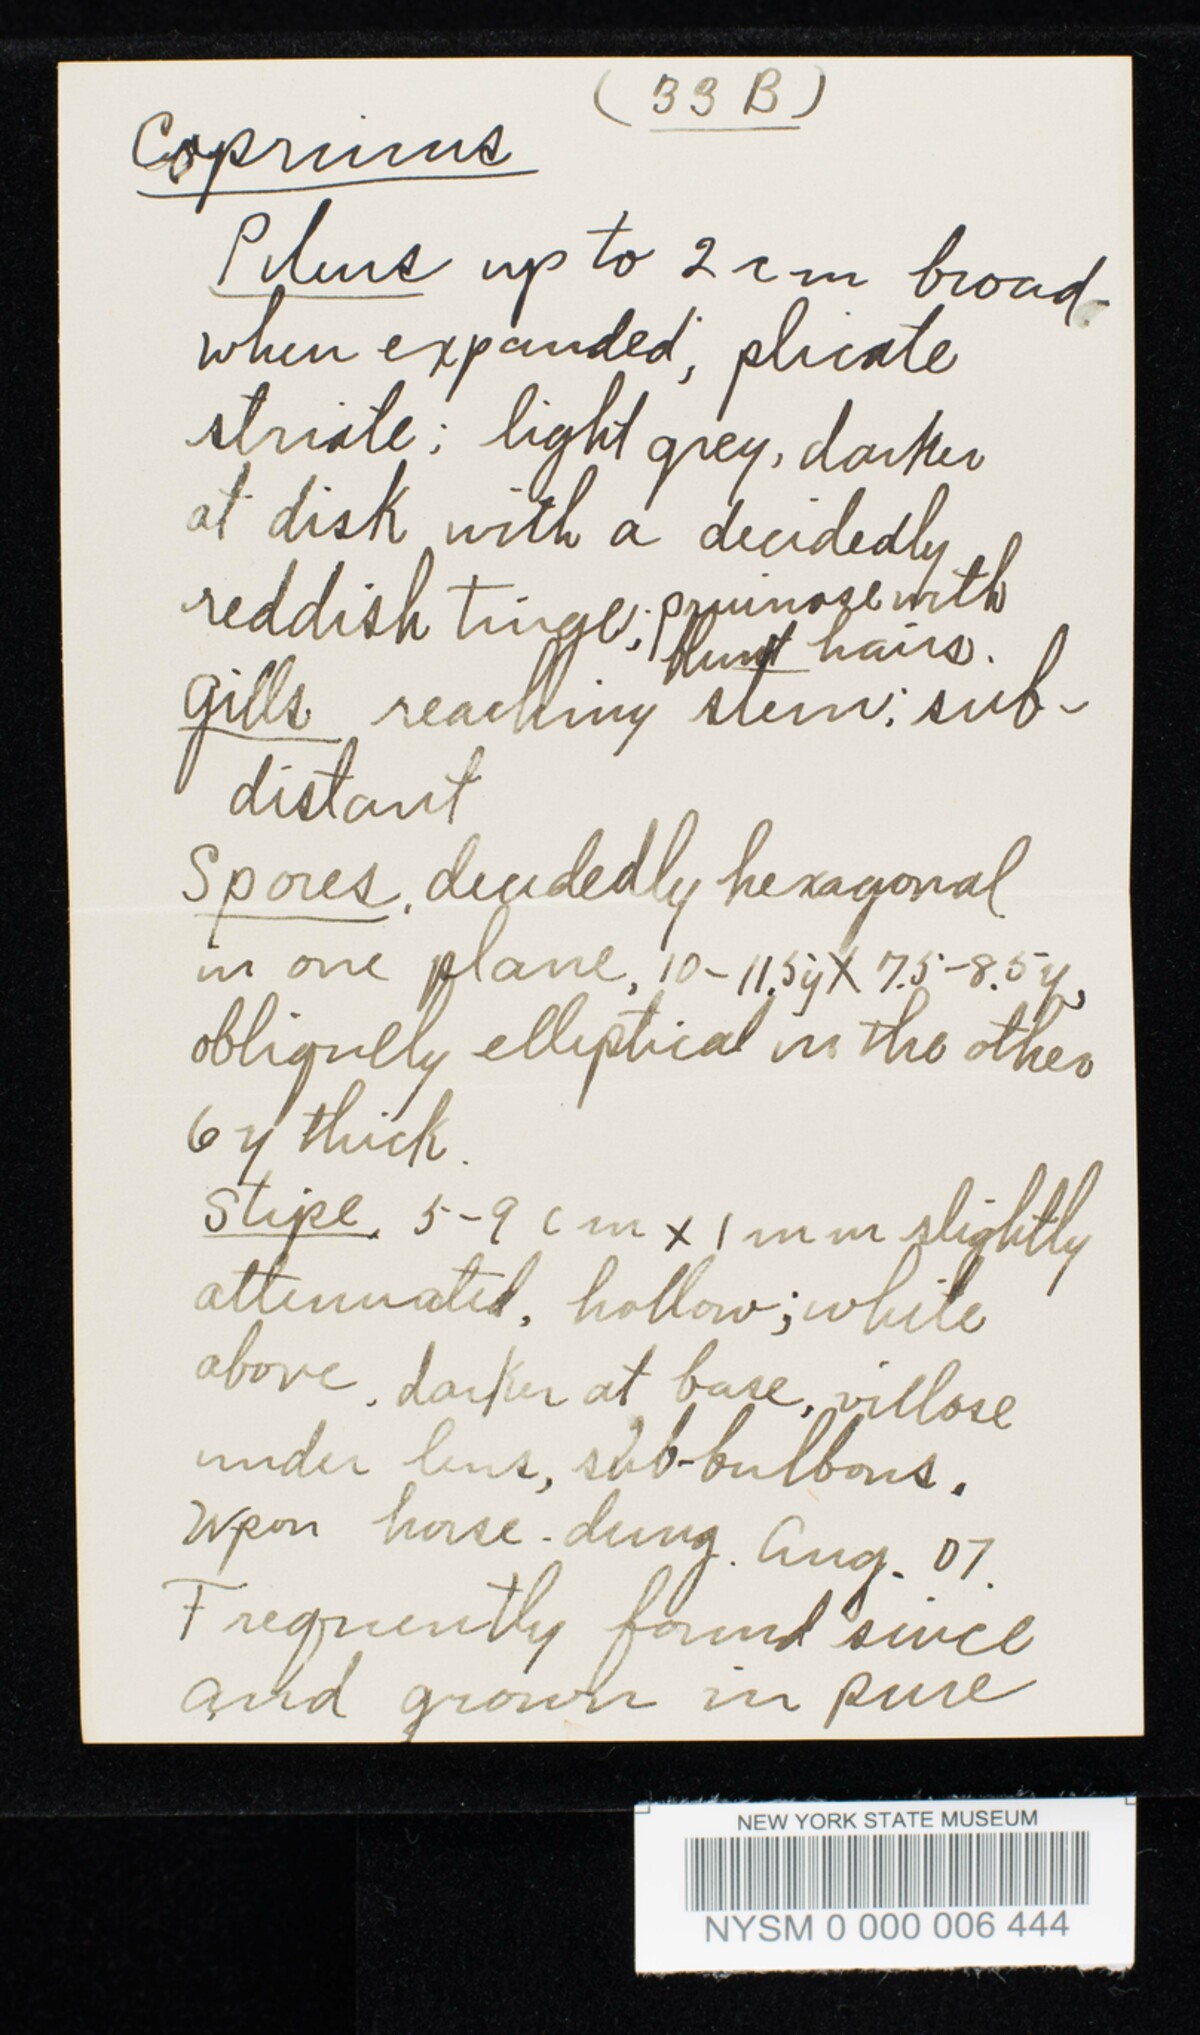 (33 B)
Coprinus
Pileus up to 2 cm broad
when expanded; plicate
striate; light grey, darker
at disk with a decidedly
reddish tinge; pruinose with
blunt hairs.
Gills reaching stem; sub-
distant
Spores, decidedly hexagonal
in one plane, 10-11.5y X 7.5-8.5y,
obliquely elliptical in the other
6y thick.
Stipe, 5-9 cm x 1 mm slightly
attenuated, hollow; white
above, darker at base, villose
under lens, sub-bulbous.
Upon horse-dung. Aug. 07.
Frequently found since
and grown in pure
NEW YORK STATE MUSEUM
NYSM 0 000 006 444